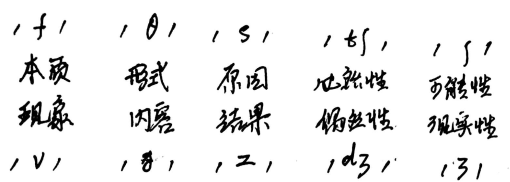 / f / / θ / / s / / tʃ / / ʃ /
本质 形式 原因 必然性 可能性
现象 内容 结果 偶然性 现实性
/ v / / ð / / z / / dʒ / / ʒ /